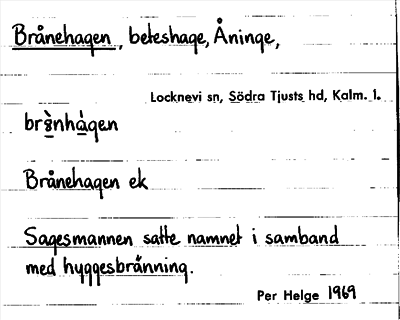 Brånehagen, beteshage, Åninge,
Locknevi sn, Södra Tjusts hd, Kalm. l.
brånhàgen
Brånehagen ek
Sagesmannen satte namnet i samband
med hyggesbränning.
Per Helge 1969